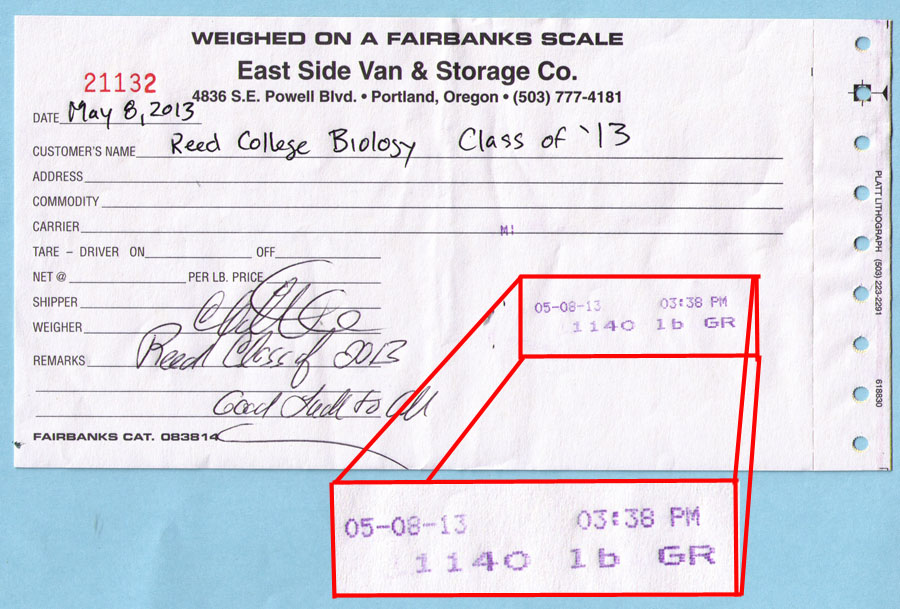 WEIGHED ON A FAIRBANKS SCALE
East Side Van & Storage Co.
21132
4836 S.E. Powell Blvd. • Portland, Oregon • (503) 777-4181
DATE May 8, 2013
CUSTOMER'S NAME Reed College Biology Class of '13
ADDRESS
COMMODITY
CARRIER
M!
TARE – DRIVER ON OFF
NET @ PER LB. PRICE
SHIPPER
WEIGHER
REMARKS Reed Class of 2013
Good Luck to All
FAIRBANKS CAT. 083814
05-08-13 03:38 PM
1140 lb GR
PLATT LITHOGRAPH (503) 223-2291
618830
05-08-13 03:38 PM
1140 lb GR